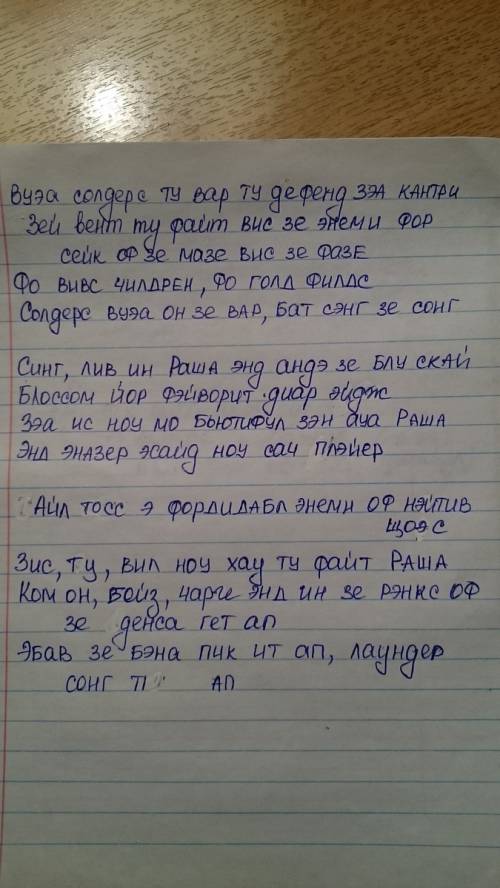 Вуэа солдерс ту вар ту дефенд зэа кантри
Зей вент ту файт вис зе энеми фор
сейк оф зе мазе вис зе фазе
Фо вивс чилдрен, фо голд филдс
Солдерс вуэа он зе вар, бат сэнг зе сонг
Синг, лив ин Раша энд андэ зе блу скай
Блоссом йор фэйворит диар эйдж
Зэа ис ноу мо бьютифул зэн ауа Раша
Энд эназер эсайд ноу сач плэйер
Айл тосс э формидабл энеми оф нэйтив
щоэс
Зис, ту, вил ноу хау ту файт Раша
Ком он, бойз, чарге энд ин зе рэнкс оф
зе денса гет ап
Эбав зе бэна пик ит ап, лаундер
сонг ап